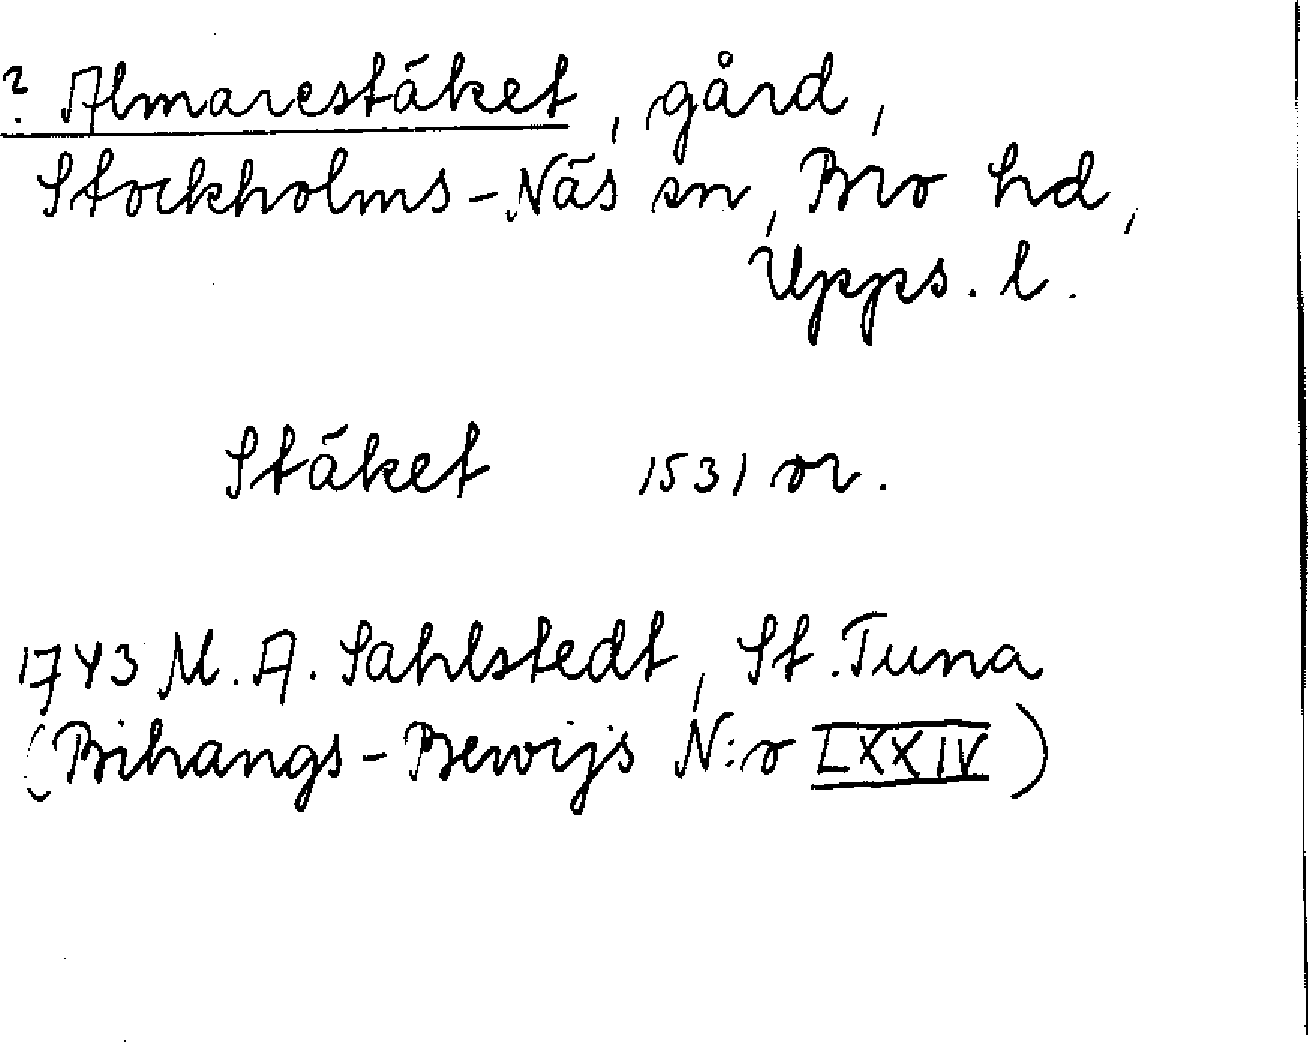 ? Almarestäket, gård,
Stockholms-Näs sn, Bro hd,
Upps. l.
Stäket 1531 or.
1743 M. A. Sahlstedt, St. Tuna
(Bihangs-Bewijs N:o LXXIV)